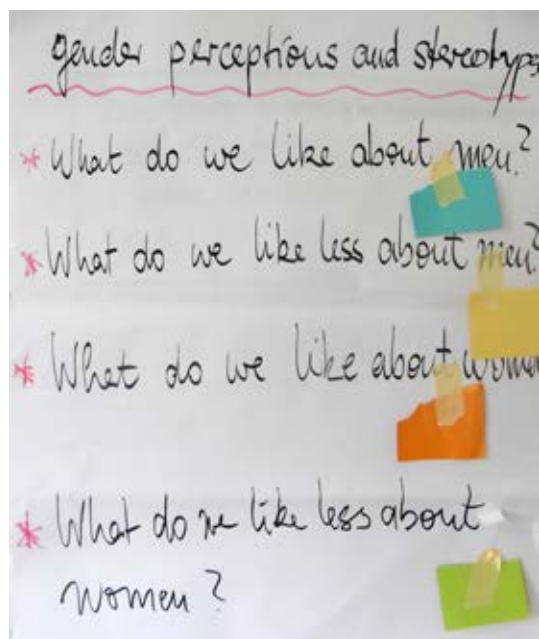 gender perceptions and stereotypes
* What do we like about men?
* What do we like less about men?
* What do we like about wome
* What do we like less about
women?